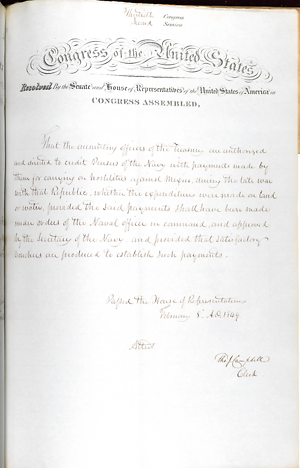 Thirtieth Congress
Second Session
Congress of the United States
Resolved By the Senate and House of Representatives of the United States of America in
CONGRESS ASSEMBLED,
That the accounting officers of the Treasury are authorized
and directed to credit Pursers of the Navy with payments made by
them for carrying on hostilities against Mexico, during the late war
with that Republic, whether the expenditures were made on land
or water, provided the said payments shall have been made
under orders of the Naval officer in command, and approved
by the Secretary of the Navy, and provided that satisfactory
vouchers are produced to establish such payments.
Passed the House of Representatives
February 8. A.D. 1849
Attest
Tho. J. Campbell
Clerk